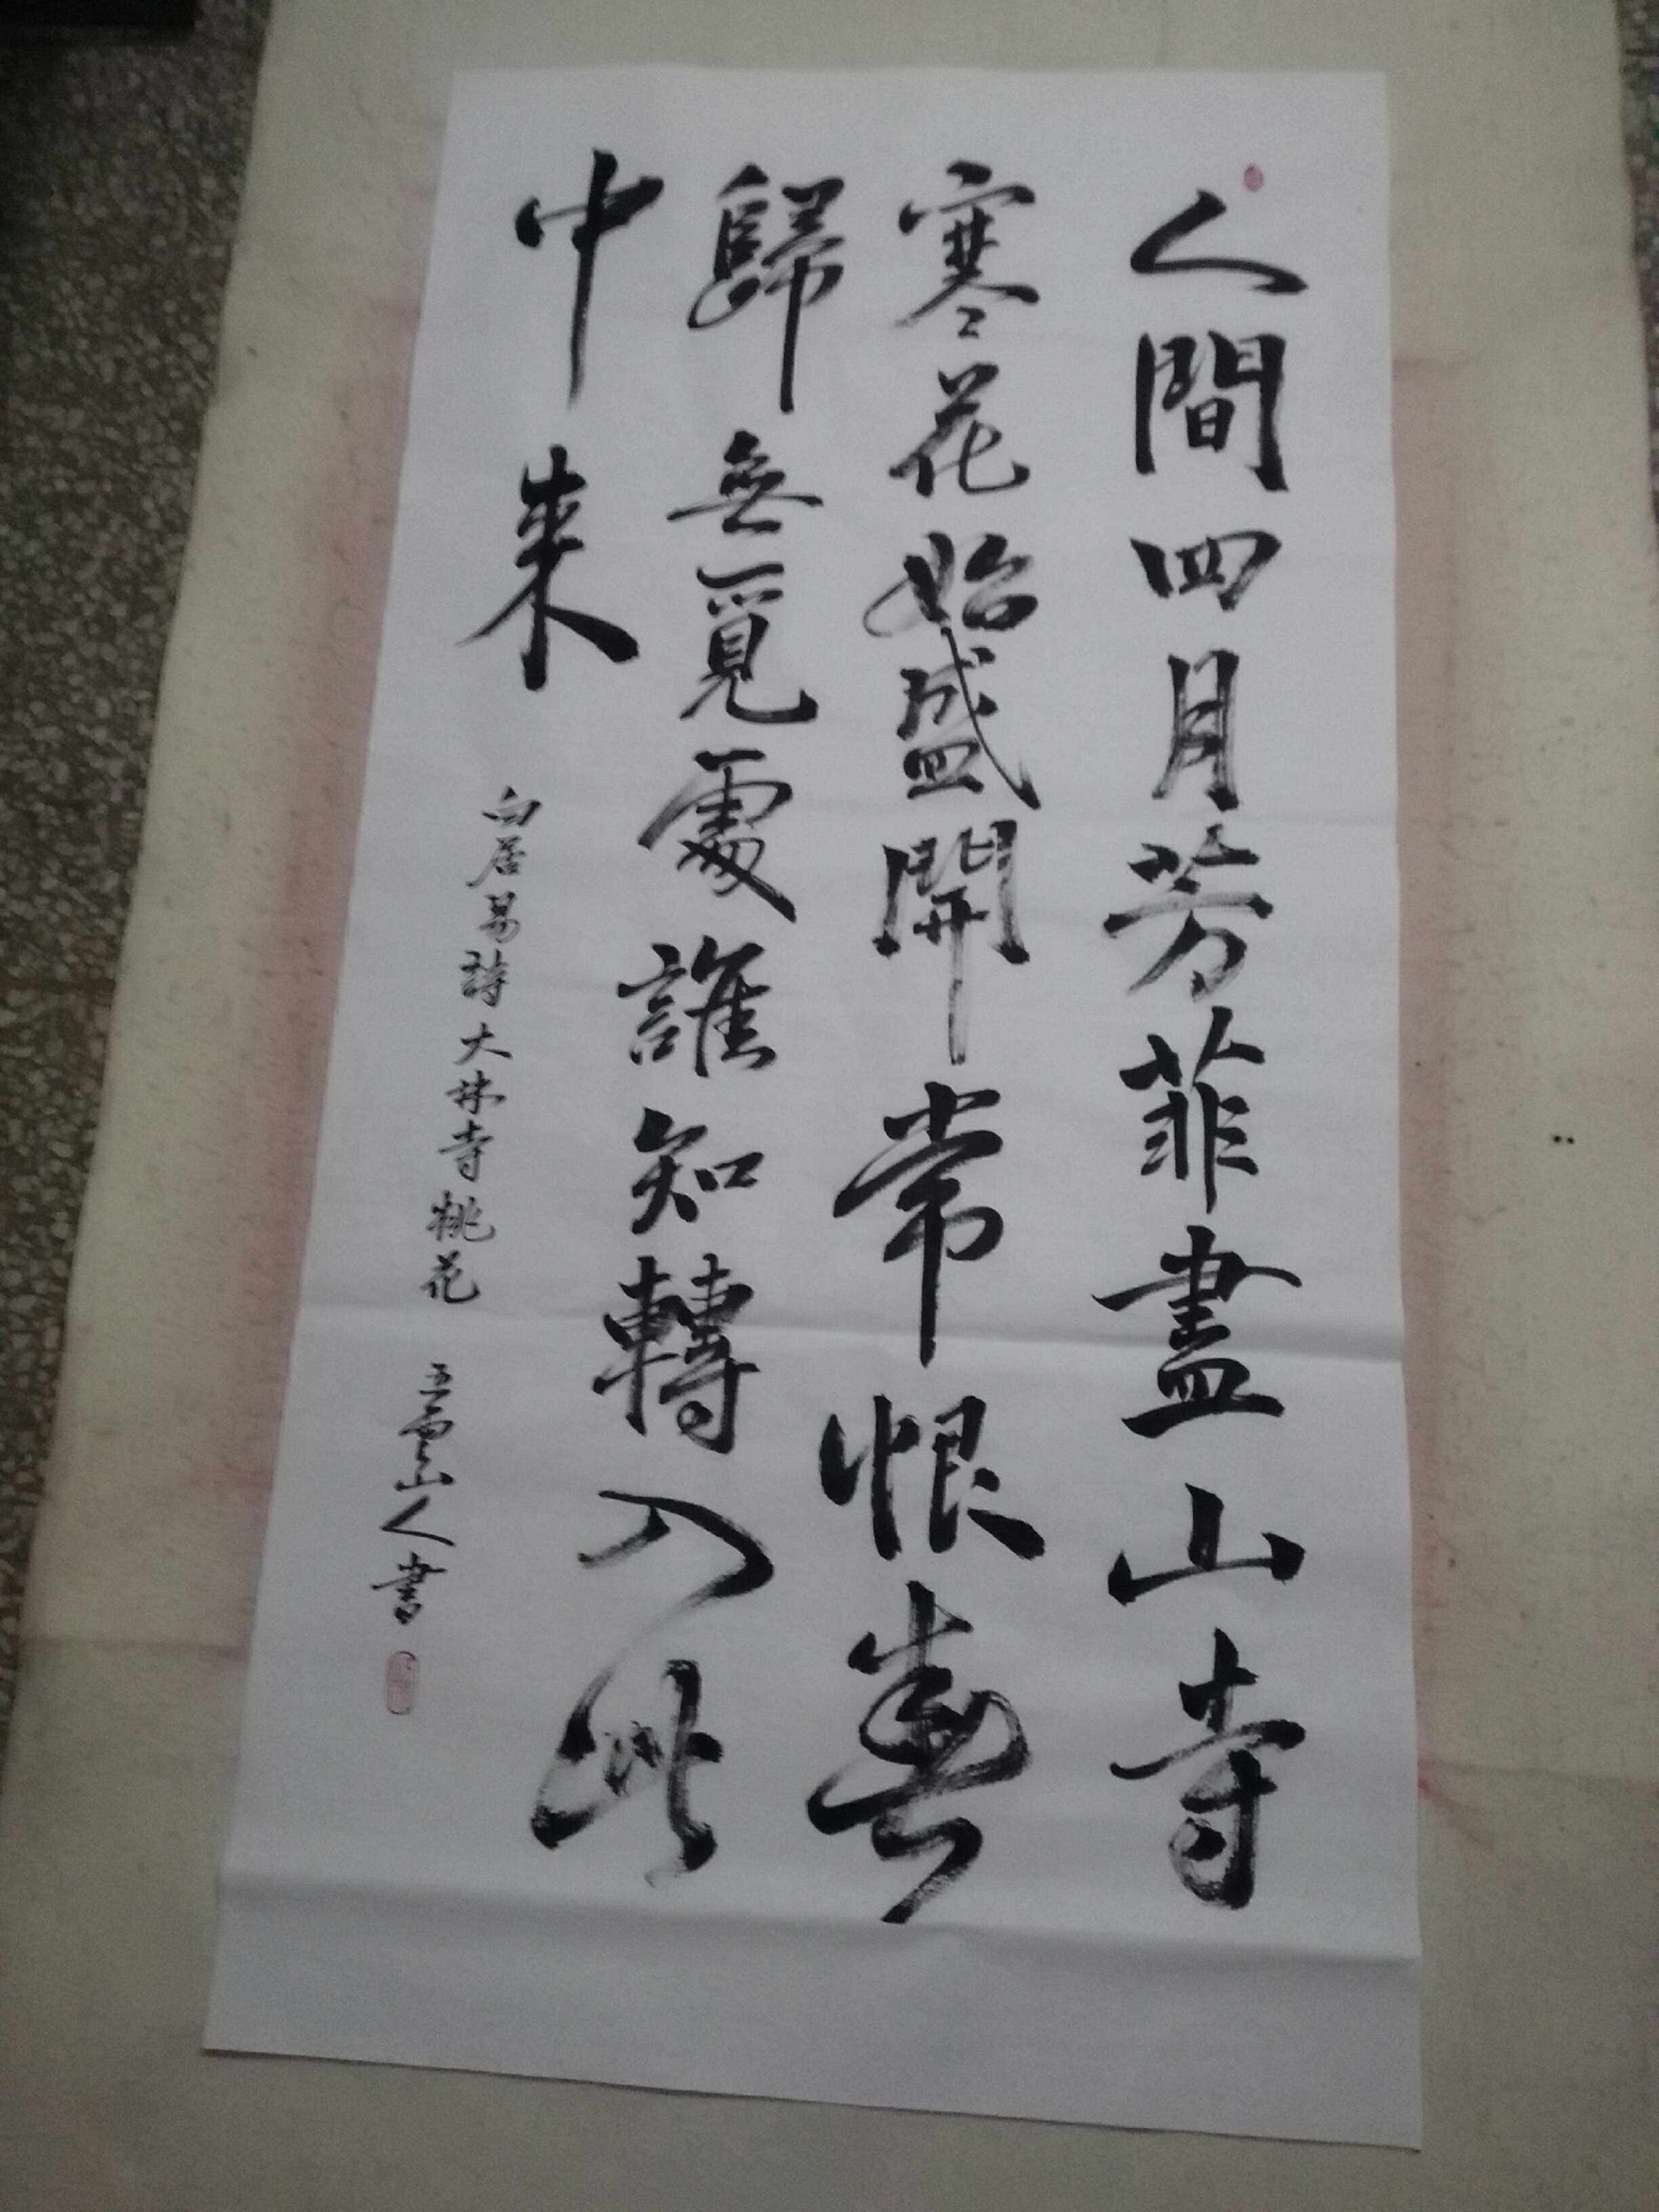 人間四月芳菲盡山寺
寒花始盛開常恨春
歸無覓處誰知轉入此
中來
白居易詩大林寺桃花
五雲山人書